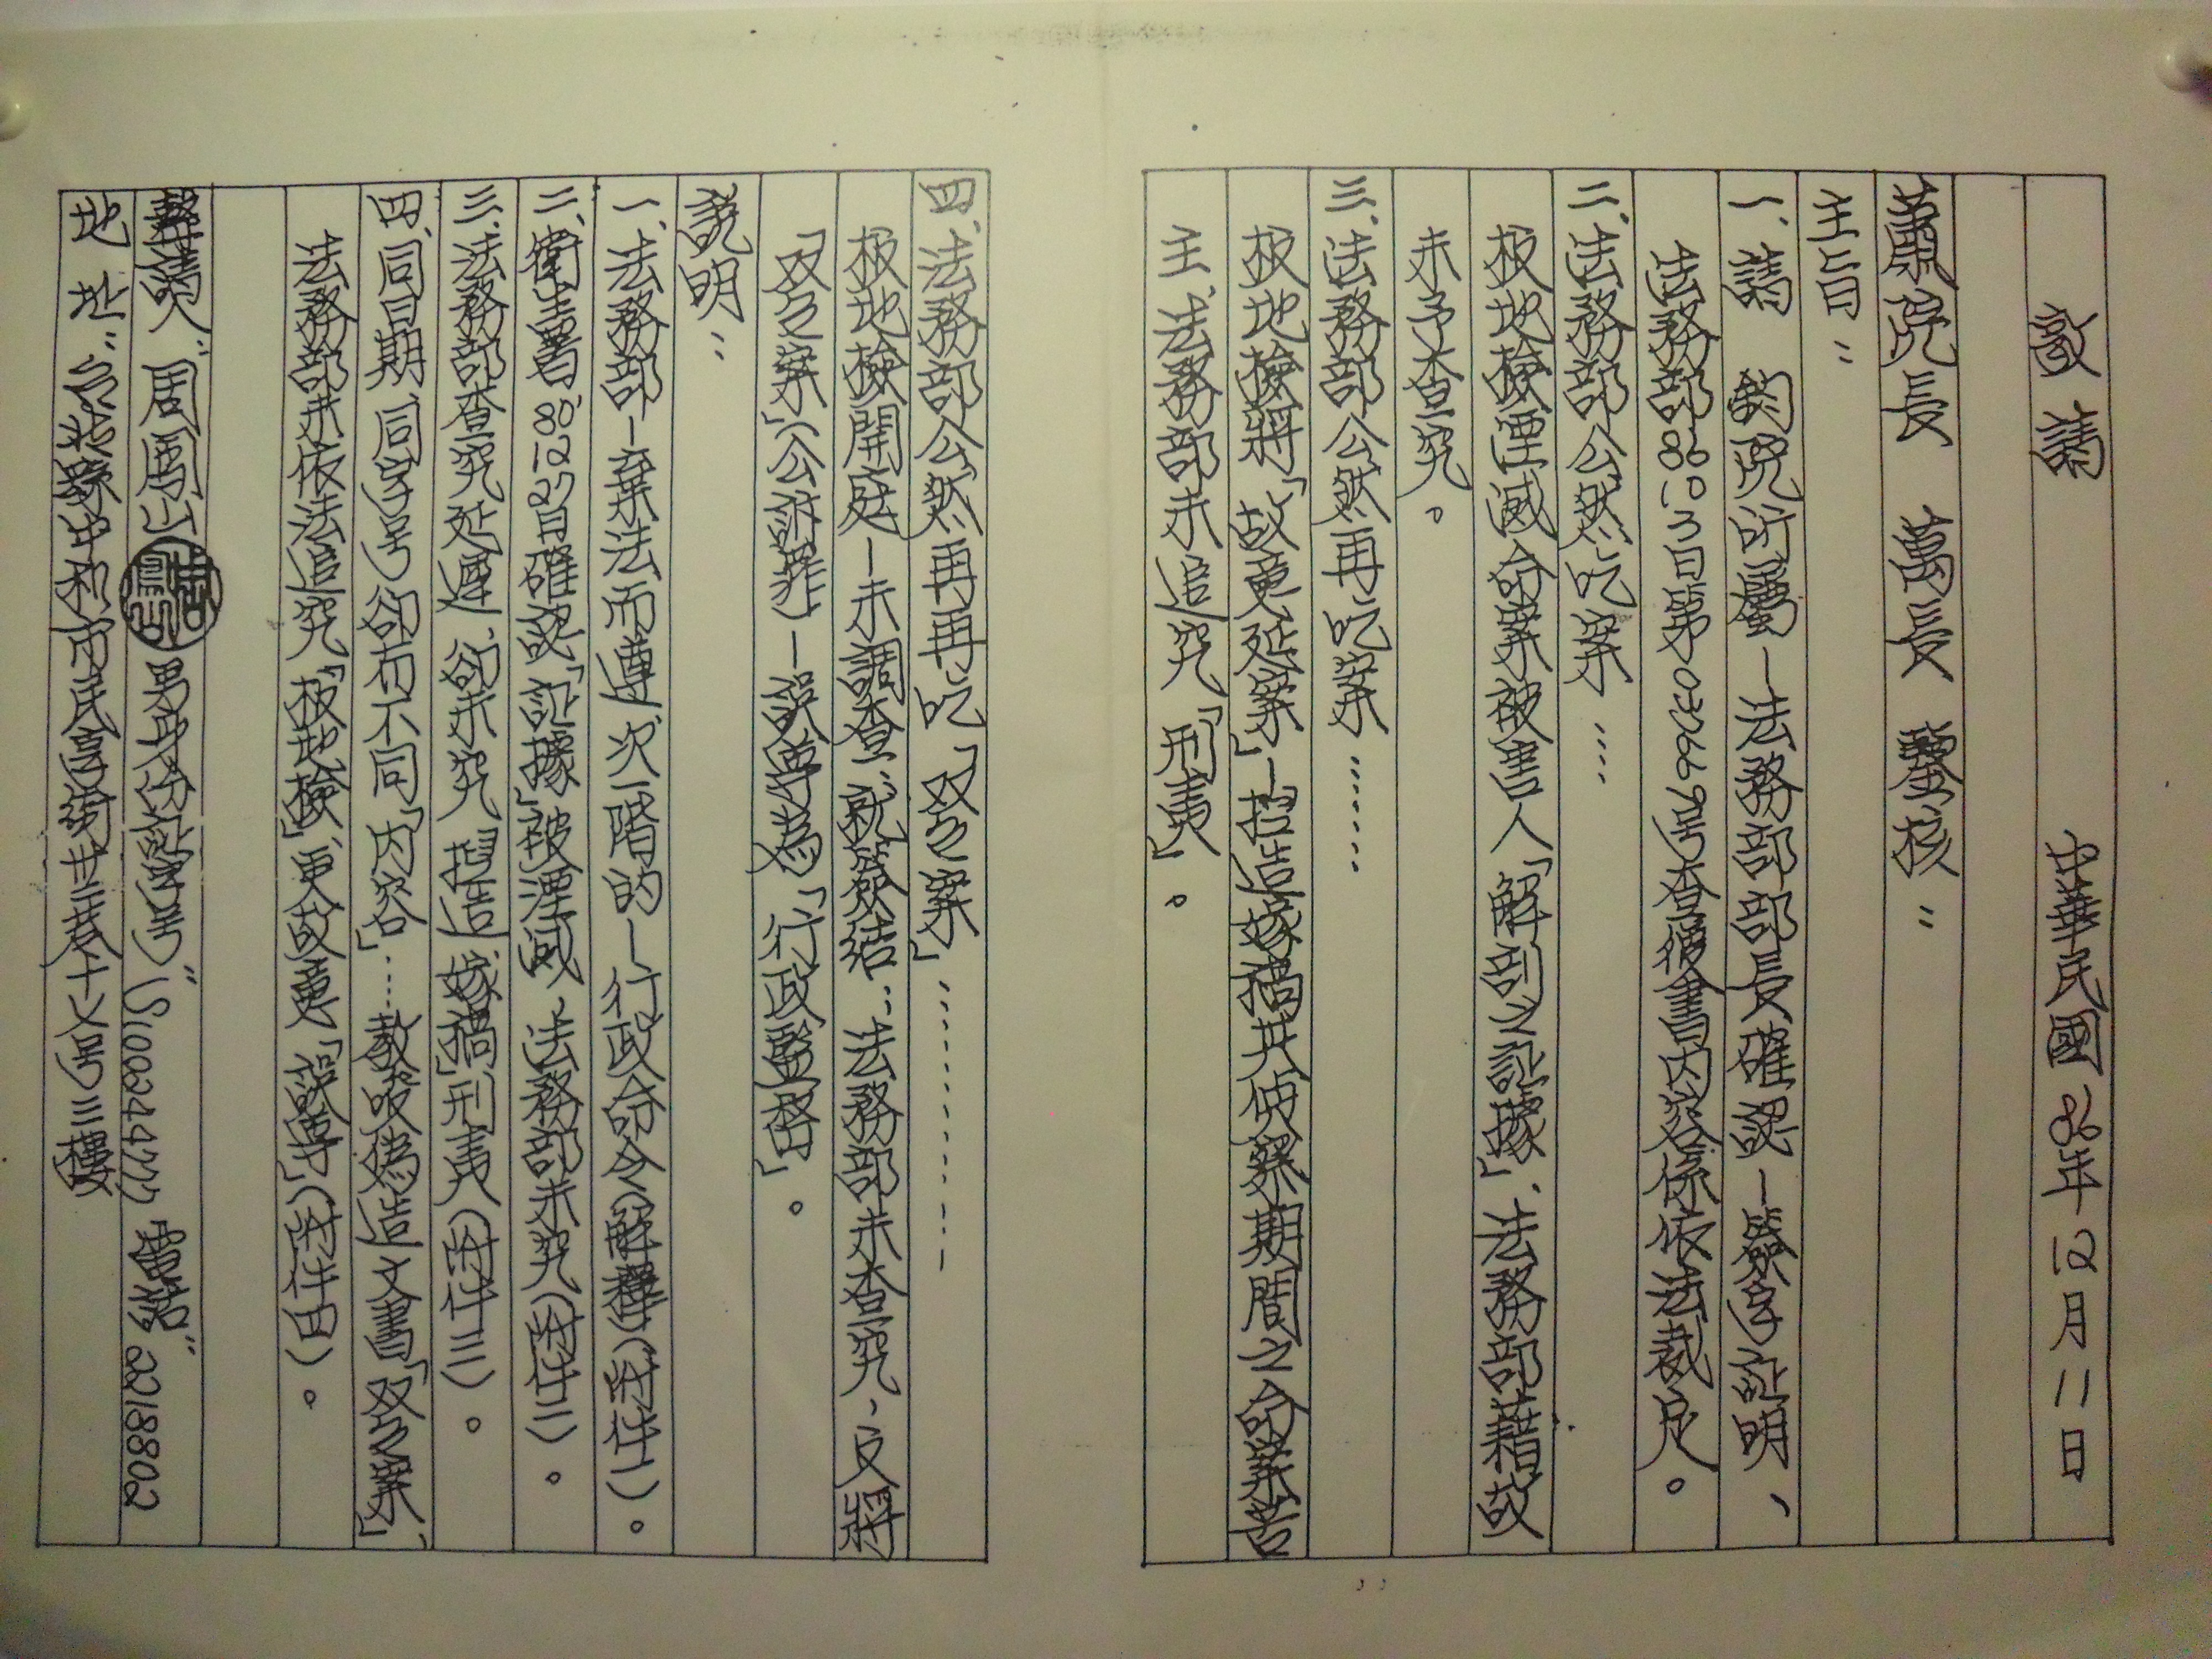 敬請　中華民國86年12月11日
蕭院長　萬長　鑒核：
主旨：
一、請　鈞院所屬－法務部部長確認－簽字証明、
法務部86.10.3日第037669号查復書內容係依法裁定。
二、法務部公然吃案‥‥
板地檢湮滅命案被害人「解剖之証據」、法務部藉故
未予查究。
三、法務部公然再吃案‥‥‥‥
板地檢將「故意延案」－捏造嫁禍共偵察期間之命案苦
主、法務部未追究「刑責」。
四、法務部公然再再吃「双之案」‥‥‥‥‥‥
板地檢開庭－未調查、就簽結‥法務部未查究，反將
「双之案」(公訴罪)－誤導為「行政醫務」。
說明：
一、法務部－棄法而遵次一階的－行政命令(解釋)(附件一)。
二、衛生署80.12.27日確認「証據」被湮滅－法務部未究(附件二)。
三、法務部查究延遲、卻未究「捏造嫁禍」刑責(附件三)。
四、同日期、同字号卻有不同「內容」‥‥教唆偽造文書「双之案」、
法務部未依法追究「板地檢」、更故意「誤導」(附件四)。
聲請人：周鳳山　男　身份証字号：S100244777　電話：2218802
地址：台北縣中和市民享街廿三巷十七号三樓